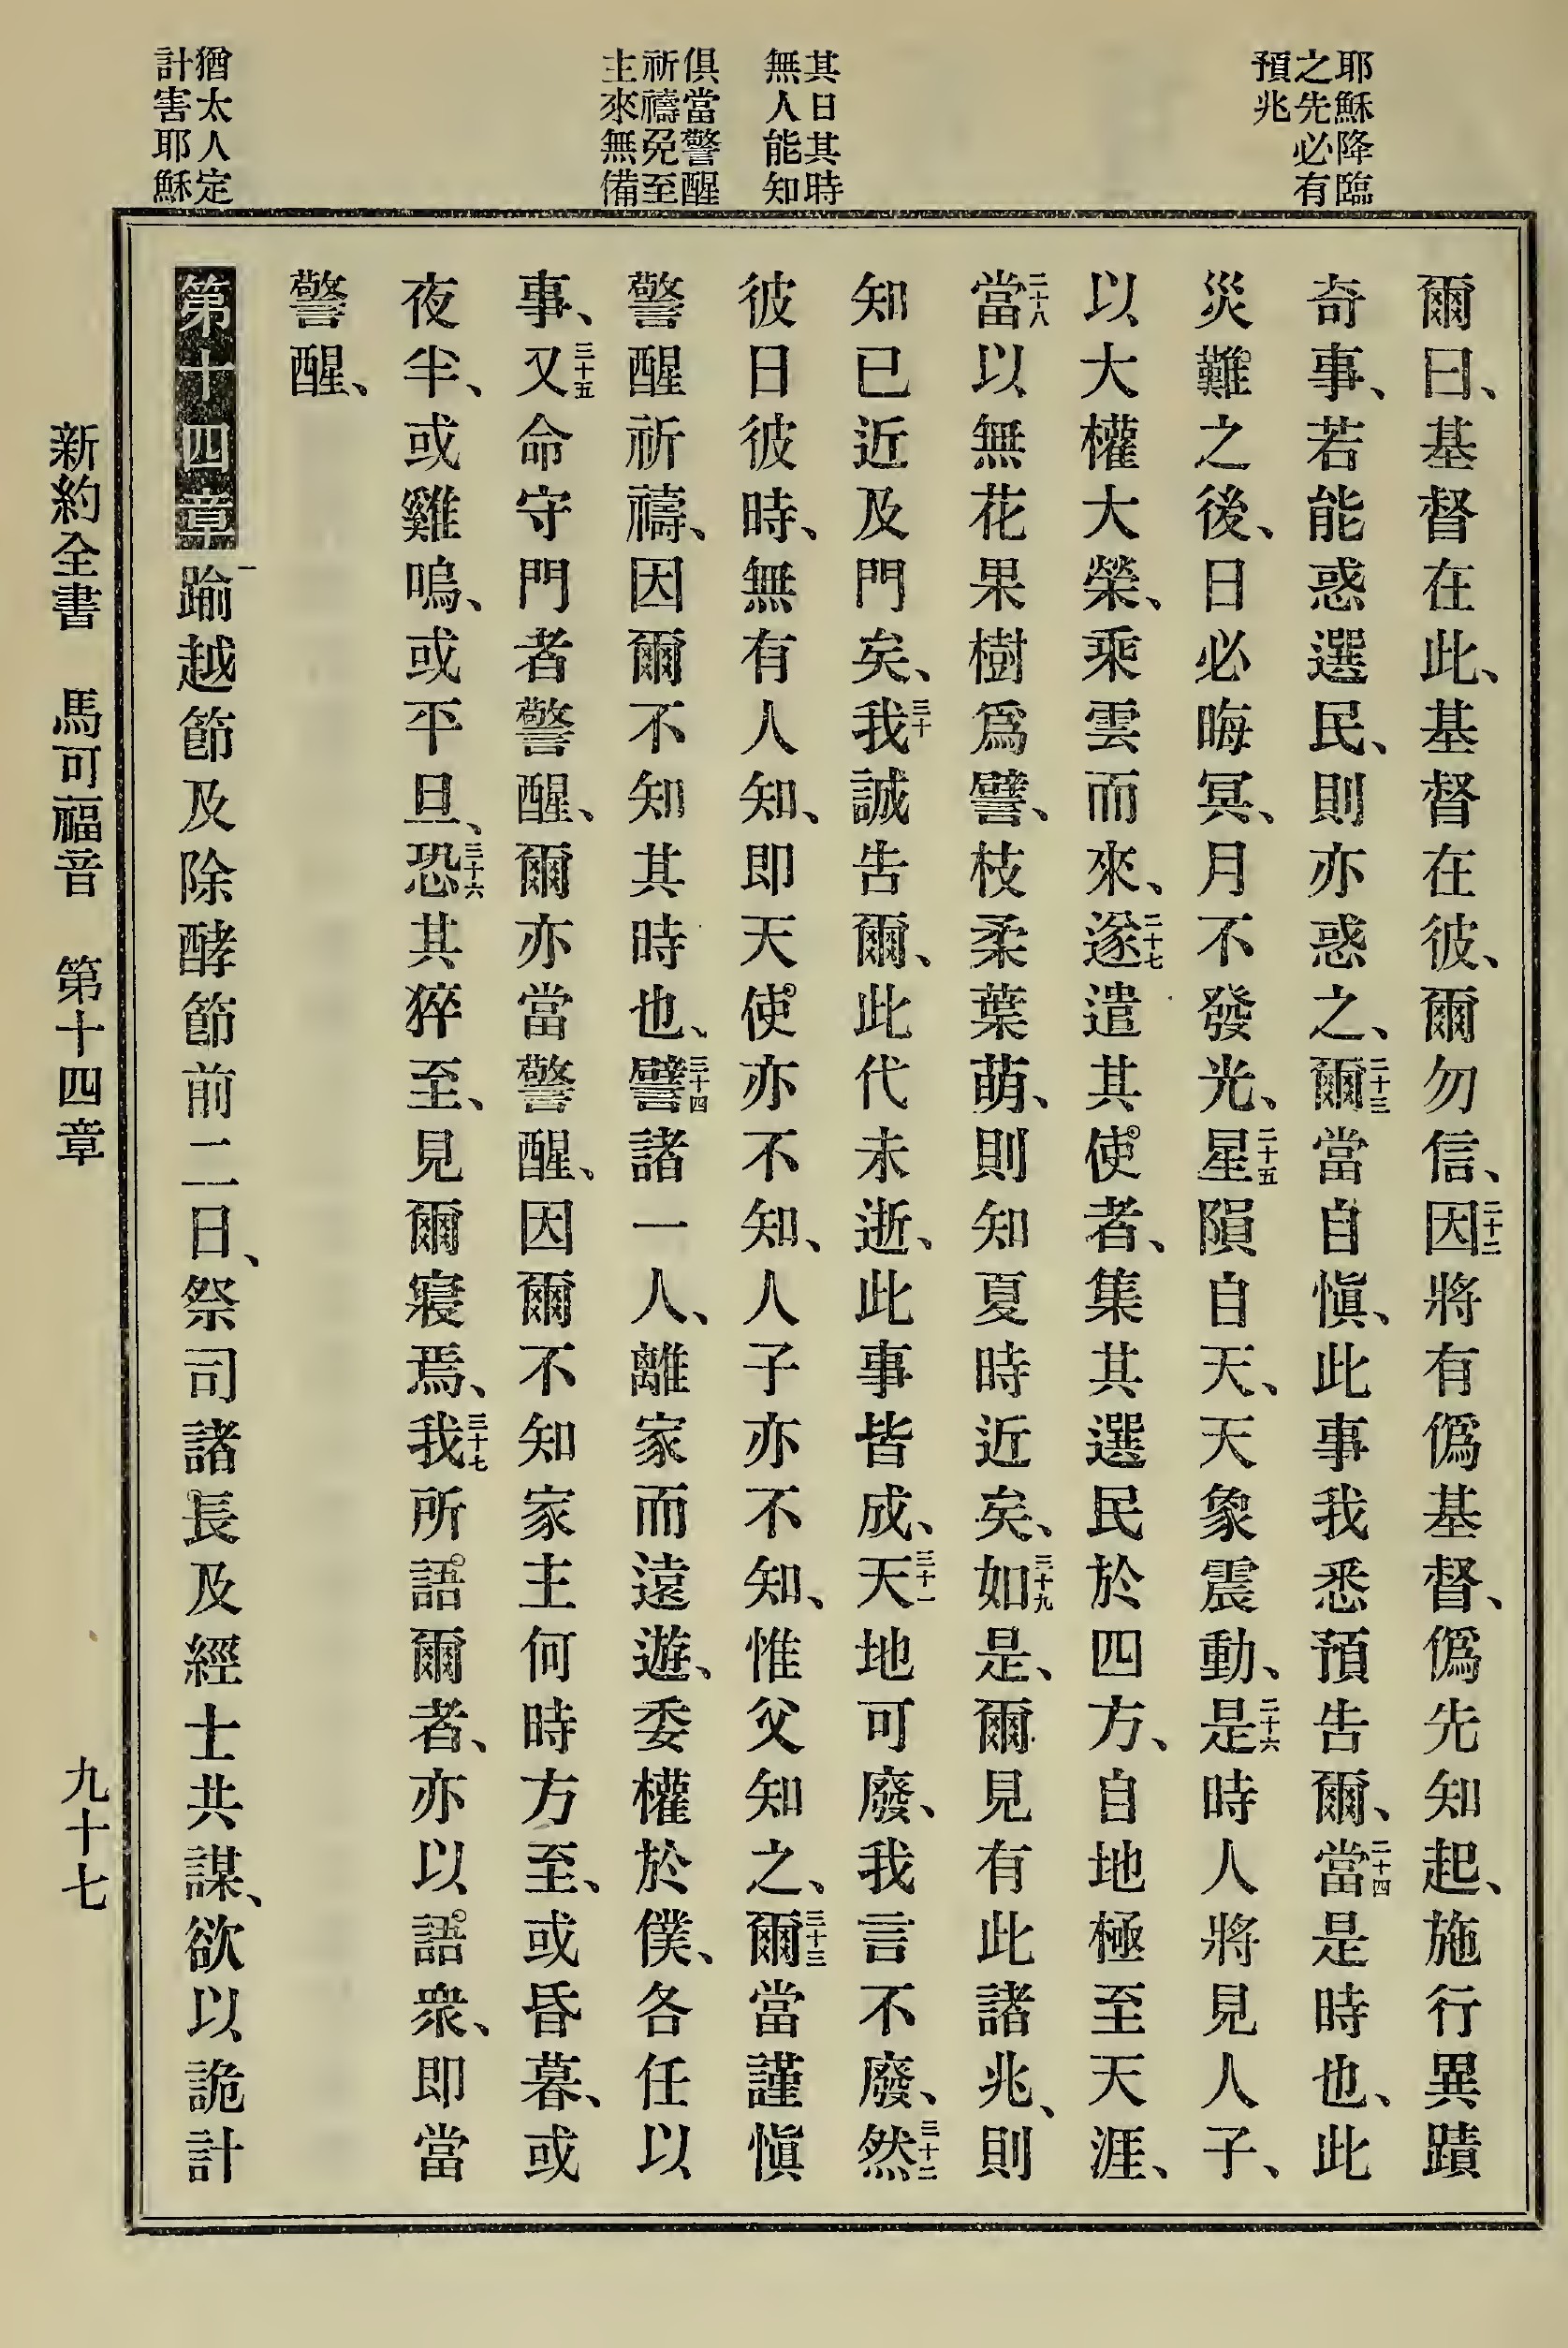 耶穌降臨
之先必有
預兆
其日其時
無人能知
俱當警醒
祈禱免至
主來無備
猶太人定
計害耶穌
爾曰、基督在此、基督在彼、爾勿信、二十二因將有僞基督、僞先知起、施行異蹟
奇事、若能惑選民、則亦惑之、二十三爾當自愼、此事我悉預告爾、二十四當是時也、此
災難之後、日必晦冥、月不發光、二十五星隕自天、天象震動、二十六是時人將見人子、
以大權大榮、乘雲而來、二十七遂遣其使者、集其選民於四方、自地極至天涯、
二十八當以無花果樹爲譬、枝柔葉萌、則知夏時近矣、二十九如是、爾見有此諸兆、則
知已近及門矣、三十我誠告爾、此代未逝、此事皆成、三十一天地可廢、我言不廢、三十二然
彼日彼時、無有人知、即天使亦不知、人子亦不知、惟父知之、三十三爾當謹愼
警醒祈禱、因爾不知其時也、三十四譬諸一人、離家而遠遊、委權於僕、各任以
事、三十五又命守門者警醒、爾亦當警醒、因爾不知家主何時方至、或昏暮、或
夜半、或雞鳴、或平旦、三十六恐其猝至、見爾寢焉、三十七我所語爾者、亦以語衆、即當
警醒、
第十四章 一踰越節及除酵節前二日、祭司諸長及經士共謀、欲以詭計
新約全書 馬可福音 第十四章 九十七